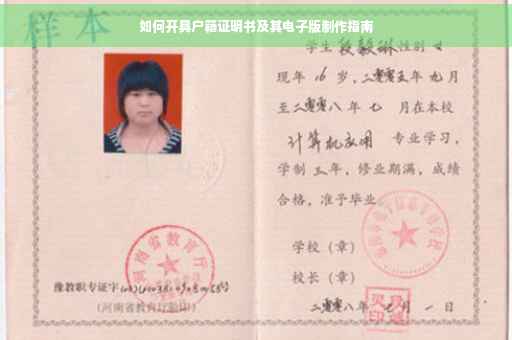 如何开具户籍证明书及其电子版制作指南
样本
学生段毅琳性别女
现年16岁,二零零五年九月
至二零零八年七月在本校
计算机应用 专业学习,
学制三年,修业期满,成绩
合格,准予毕业。
学校(章)
校长(章)
二零零八年 月一日
河南省教育厅
豫教职专证字
(河南省教育厅验印)